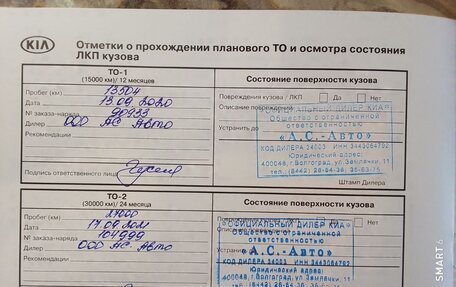 KIA
Отметки о прохождении планового ТО и осмотра состояния
ЛКП кузова
ТО-1
(15000 км)/ 12 месяцев
Состояние поверхности кузова
Пробег (км) 13504
Повреждения кузова / ЛКП Да Нет
Дата 13.09.2020
Описание повреждений
№ заказа-наряда 90933
Дилер ООО АС Авто
Устранить до
Рекомендации
Подпись ответственного лица
Штамп Дилера
ОФИЦИАЛЬНЫЙ ДИЛЕР КИА
Общество с ограниченной
ответственностью
"А.С.-Авто"
КОД ДИЛЕРА 34003 ИНН 3443064792
Юридический адрес:
400048, г.Волгоград, ул.Землячки, 11
ТО-2
(30000 км)/ 24 месяца
Состояние поверхности кузова
Пробег (км) 27000
Дата 17.09.2021
№ заказа-наряда 104999
Дилер ООО АС Авто
Рекомендации
"ОФИЦИАЛЬНЫЙ ДИЛЕР КИА"
Общество с ограниченной
ответственностью
"А.С.-Авто"
Юридический адрес:
400048, г.Волгоград, ул. Землячки, 11
SMART 6